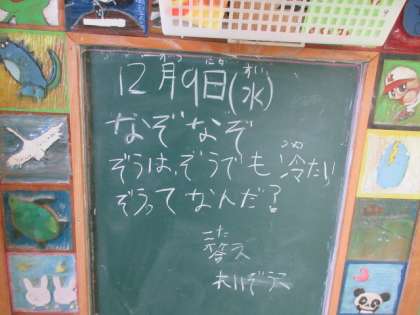 12月9日(水)
なぞなぞ
ぞうは、ぞうでも 冷たい
ぞうってなんだ?
答え
れいぞうこ